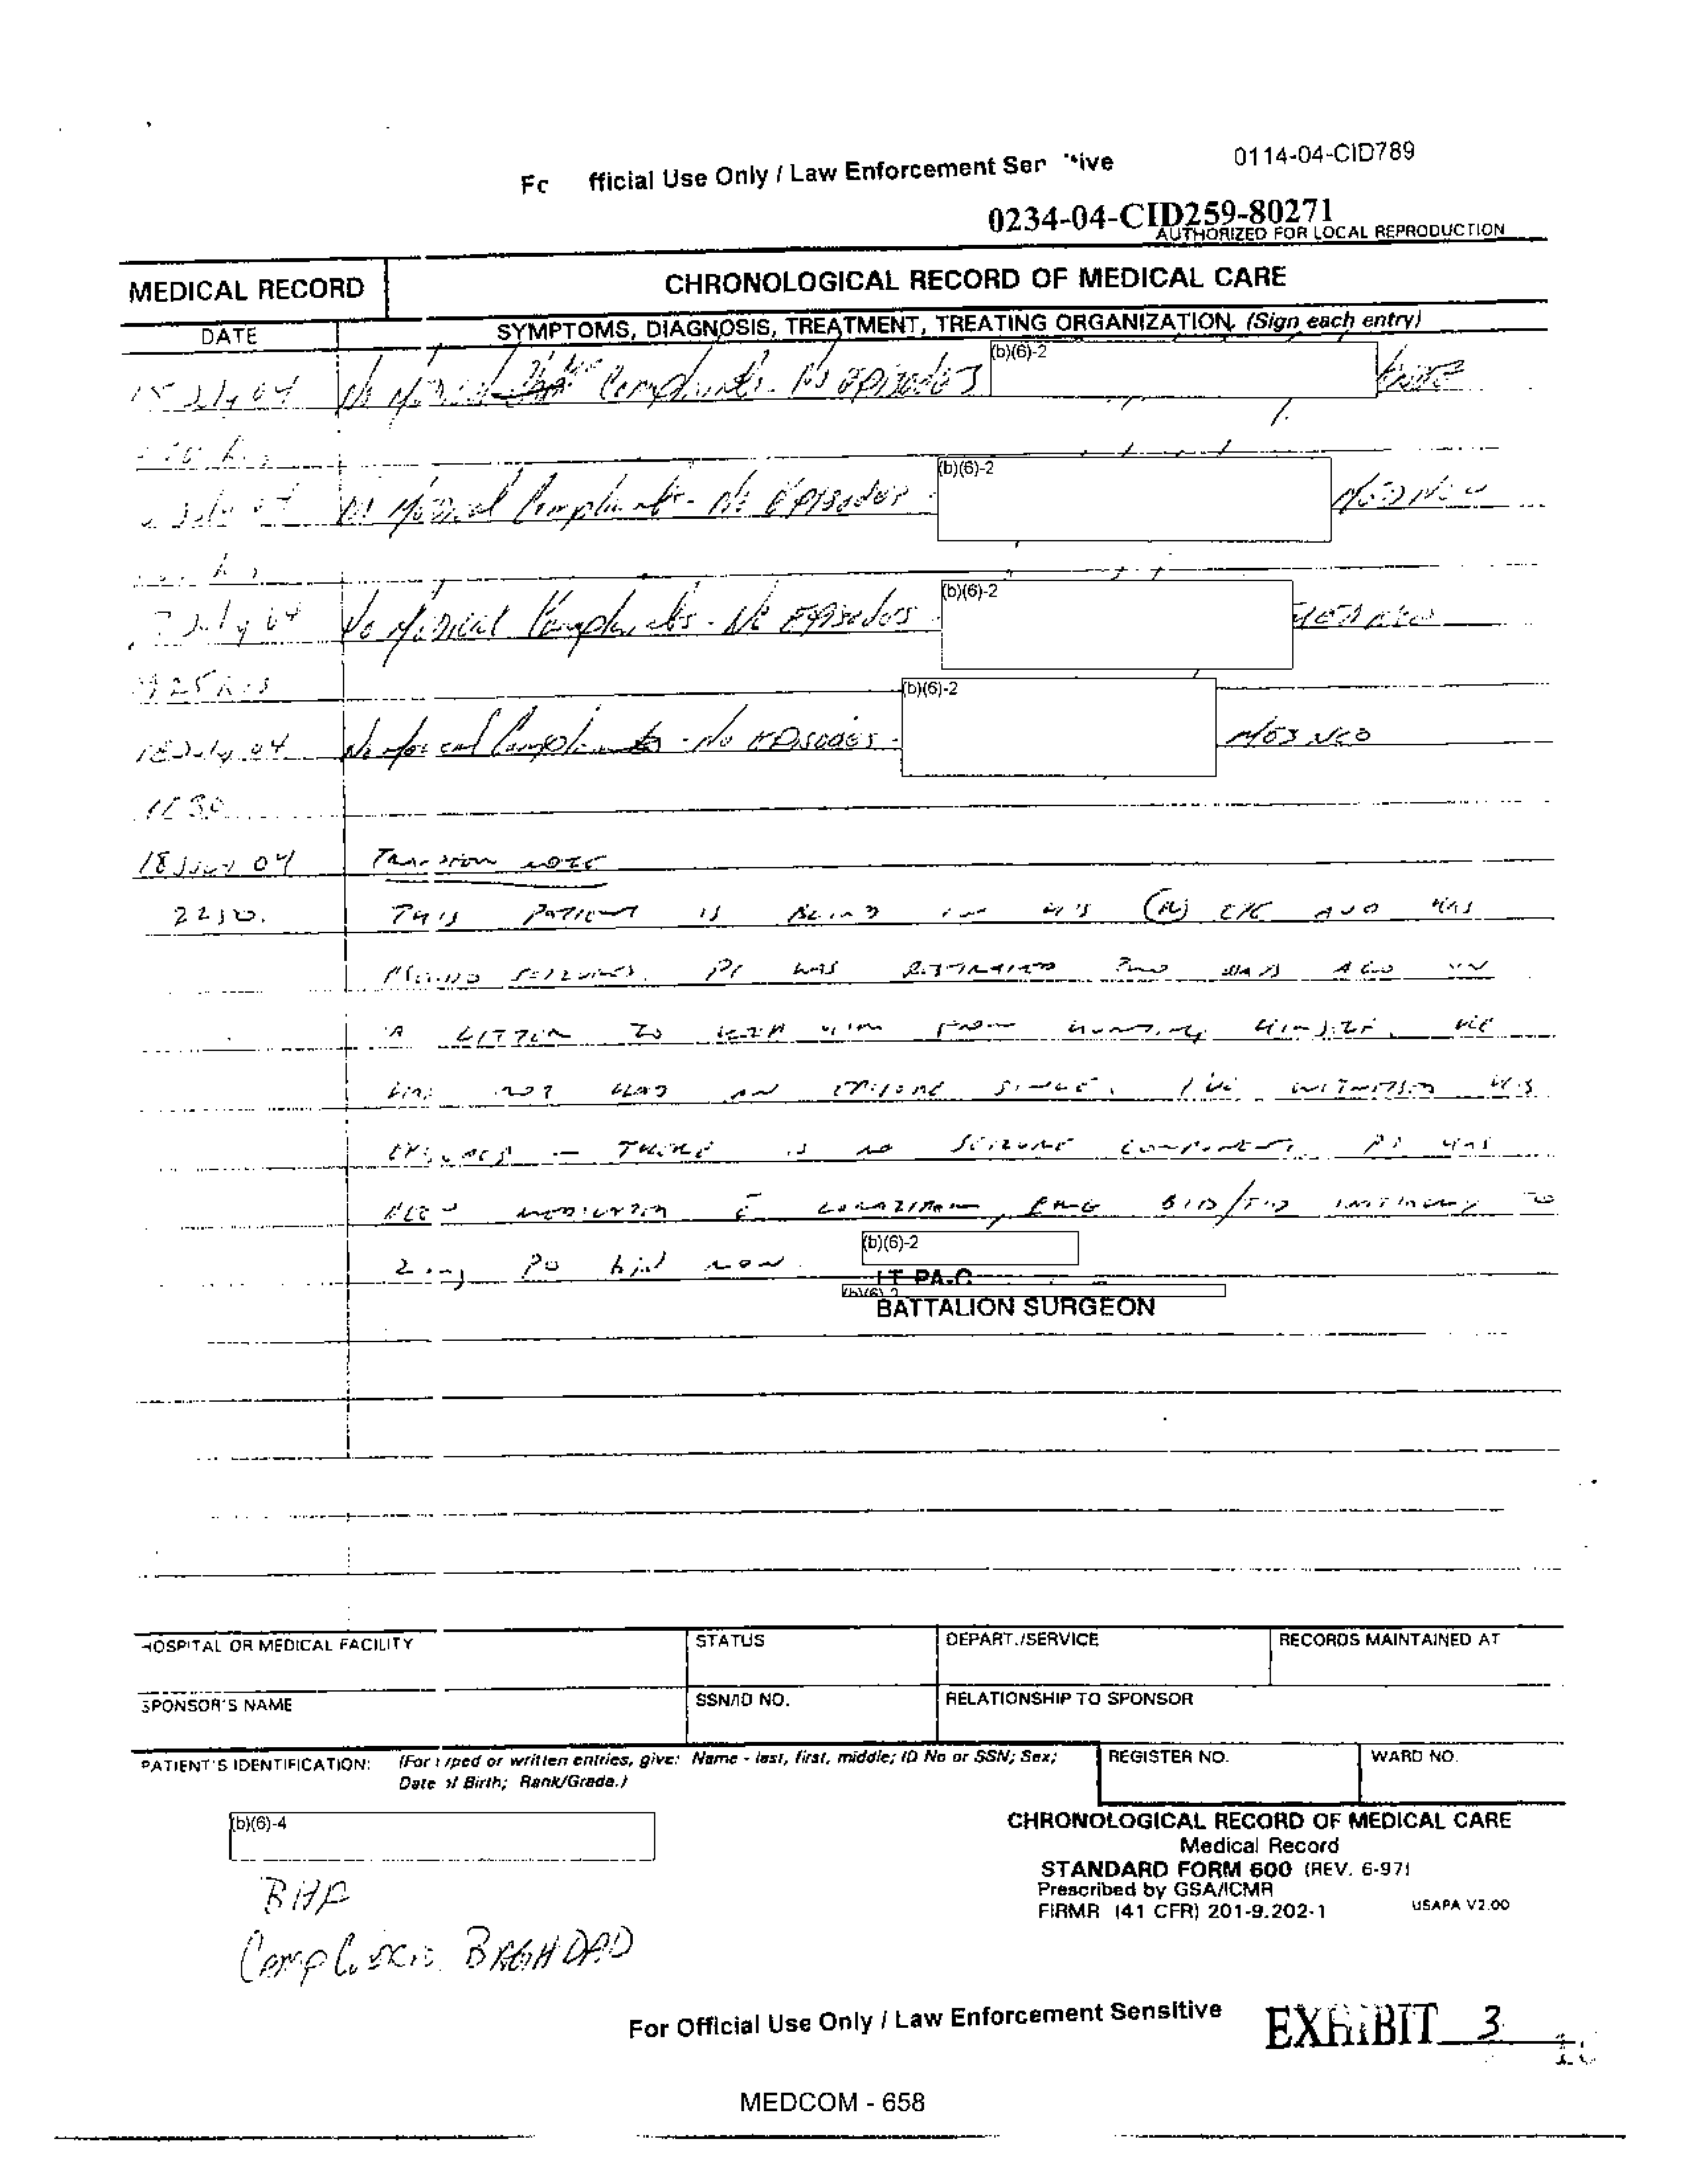 0114-04-CID789
Fc fficial Use Only / Law Enforcement Sen ive
0234-04-CID259-80271
AUTHORIZED FOR LOCAL REPRODUCTION
MEDICAL RECORD
CHRONOLOGICAL RECORD OF MEDICAL CARE
DATE
SYMPTOMS, DIAGNOSIS, TREATMENT, TREATING ORGANIZATION (Sign each entry)
(b)(6)-2
15 July 04 No Medical Complaints. No episodes
(b)(6)-2
July 04 No Medical Complaints - No Episodes - Med NCO
(b)(6)-2
7 July 04 No Medical Complaints - No Episodes. Med NCO
925 hrs
(b)(6)-2
18 July 04 No medical Complaints - No episodes - Med NCO
18 July 04 note
2210. This patient is blind in his (R) eye and has
seizures. Pt was restrained two days ago on
a litter to keep him from hurting himself. He
has not had an episode since. I've witnessed his
episodes - there is no seizure component. Pt has
been medicated c lorazepam, BID/TID to
2 mg po bid now.
(b)(6)-2
LT PA-C
(b)(6)-2
BATTALION SURGEON
HOSPITAL OR MEDICAL FACILITY
STATUS
DEPART./SERVICE
RECORDS MAINTAINED AT
SPONSOR'S NAME
SSN/ID NO.
RELATIONSHIP TO SPONSOR
PATIENT'S IDENTIFICATION: (For typed or written entries, give: Name - last, first, middle; ID No or SSN; Sex;
Date of Birth; Rank/Grade.)
REGISTER NO.
WARD NO.
(b)(6)-4
CHRONOLOGICAL RECORD OF MEDICAL CARE
Medical Record
STANDARD FORM 600 (REV. 6-97)
Prescribed by GSA/ICMR
FIRMR (41 CFR) 201-9.202-1
USAPA V2.00
BAGHDAD
For Official Use Only / Law Enforcement Sensitive
EXHIBIT 3
MEDCOM - 658